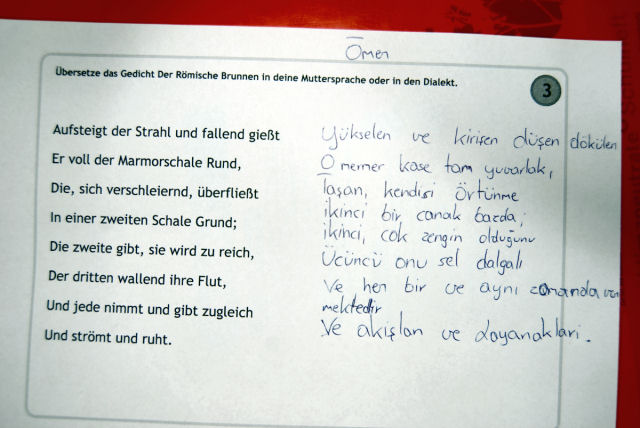 Ömer
Übersetze das Gedicht Der Römische Brunnen in deine Muttersprache oder in den Dialekt.
3
Aufsteigt der Strahl und fallend gießt
Er voll der Marmorschale Rund,
Die, sich verschleiernd, überfließt
In einer zweiten Schale Grund;
Die zweite gibt, sie wird zu reich,
Der dritten wallend ihre Flut,
Und jede nimmt und gibt zugleich
Und strömt und ruht.
Yükselen ve kirişen düşen dökülen
O mermer kase tam yuvarlak,
taşan, kendisi örtünme
ikinci bir canak bazda;
ikinci, cok zengin olduğunu
Üçüncü onu sel dalgalı
Ve her bir ve aynı zamanda ver
mektedir
Ve akışları ve dayanakları.